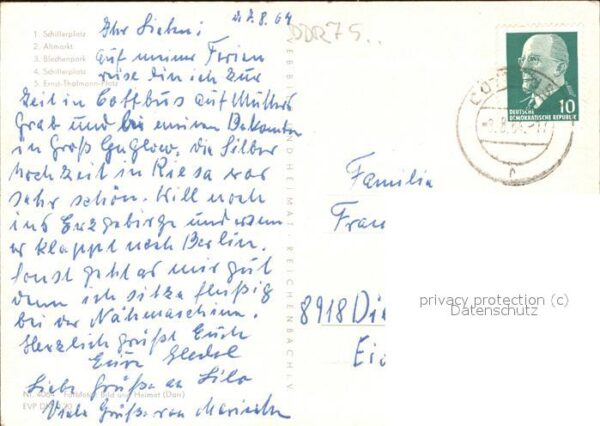 d 7.8.64
DDR 75..
Ihr Lieben!
1. Schillerplatz
2. Altmarkt
3. Blechenpark
4. Schillerplatz
5. Ernst-Thälmann-Platz
auf meiner Ferien
reise bin ich zur
Zeit in Cottbus auf Mutters
Grab und bei einem Bekannten
in Groß Gaglow. Die Silber
hochzeit in Riesa war
sehr schön. Will noch
ins Erzgebirge und wenn
er klappt nach Berlin.
Sonst geht es mir gut
denn ich sitze fleißig
bei der Nähmaschine.
Herzlich grüßt Euch
Eure
Liebe Grüße an
Viele Grüße von
Nr. Farbfoto: Bild und Heimat (Dan)
EVP DM 0,20
BILD UND HEIMAT REICHENBACH V.
COTTBUS
8.8.64-17
c
DEUTSCHE
DEMOKRATISCHE REPUBLIK
10
Familie
Frau
8918 Din
Eic
privacy protection (c)
Datenschutz